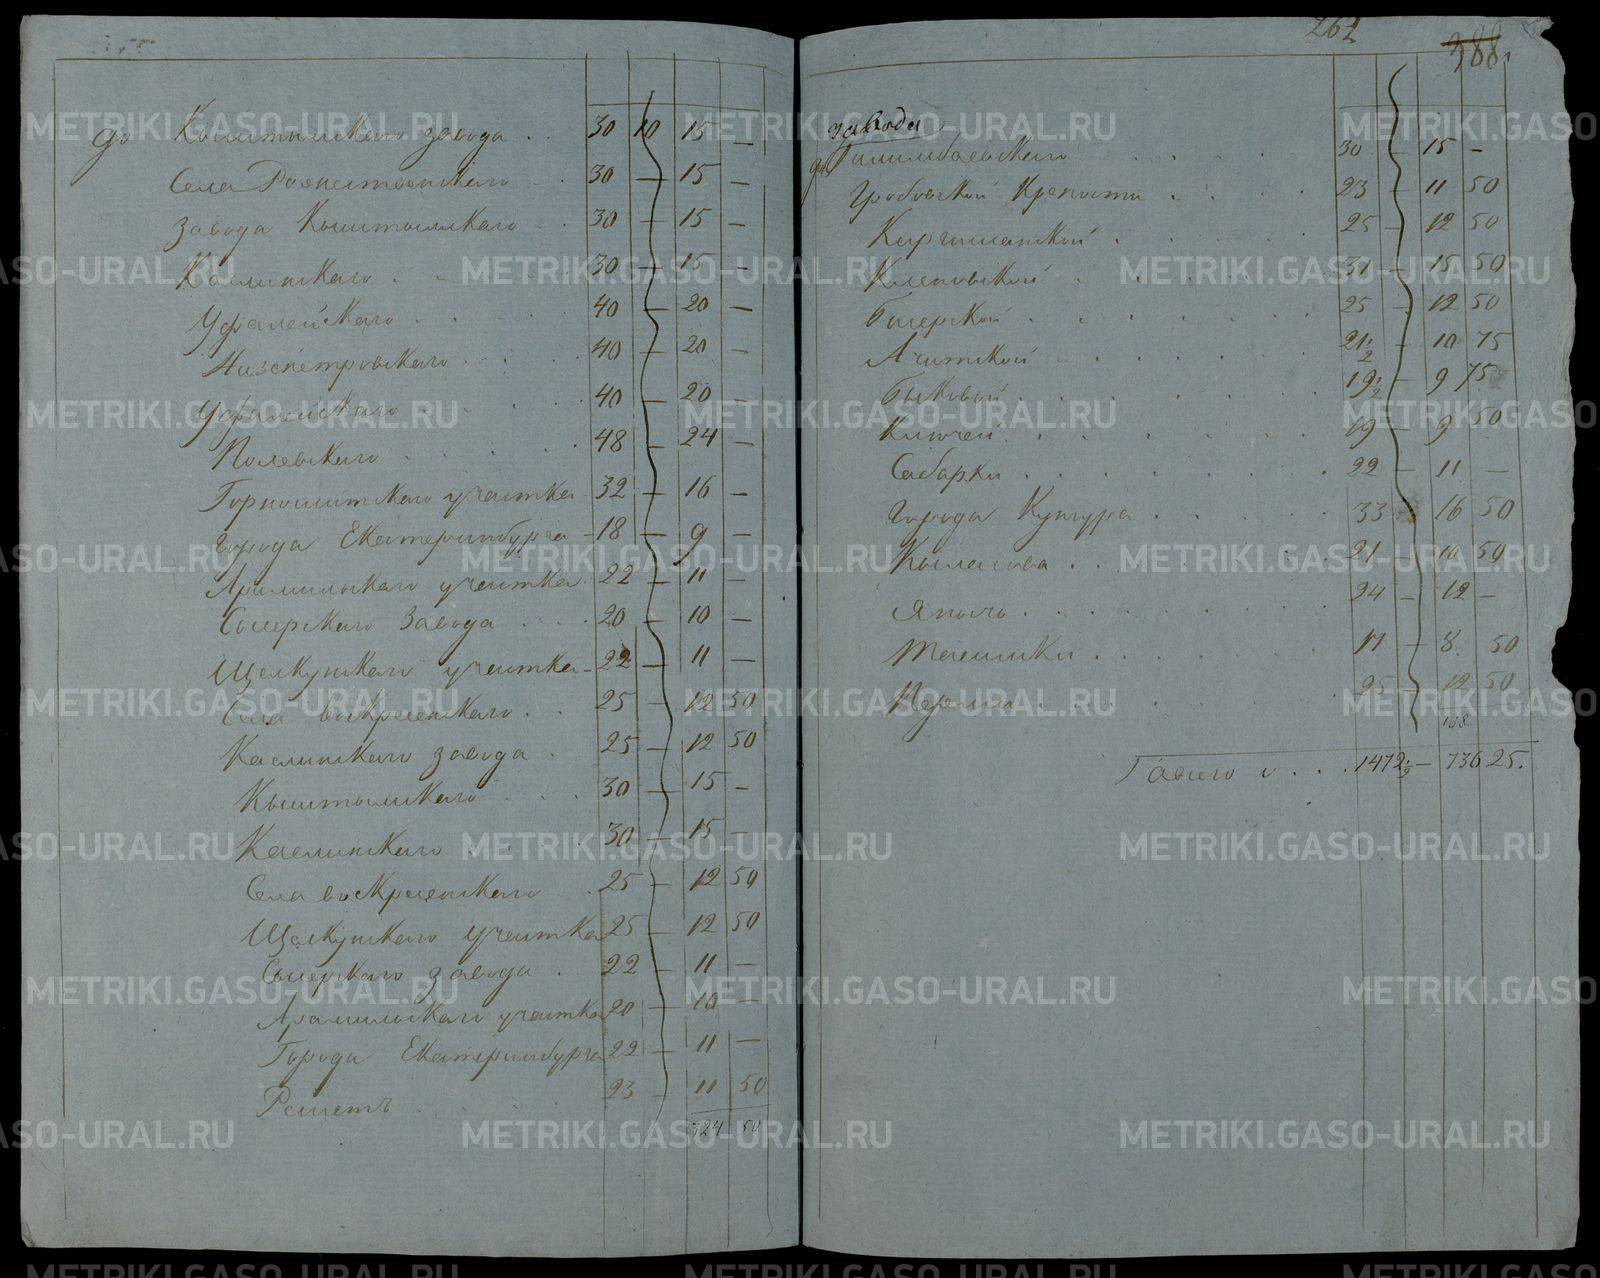 до Кыштымскаго завода . . 30 10 15 —
Села Рождественскаго . . 30 — 15 —
Завода Кыштымскаго . . 30 — 15 —
Каслинскаго . . . . 30 — 15 —
Уфалейскаго . . . . 40 — 20 —
Нязепетровскаго . . . 40 — 20 —
Уфалейскаго . . . . 40 — 20 —
Полевскаго . . . . 48 — 24 —
Горнощитскаго участка 32 — 16 —
Города Екатеринбурга - 18 — 9 —
Арамильскаго участка . 22 — 11 —
Сысерскаго Завода . . . 20 — 10 —
Щелкунскаго участка - 22 — 11 —
Села воскресенскаго . . 25 — 12 50
Каслинскаго завода . 25 — 12 50
Кыштымскаго . . . 30 — 15 —
Каслинскаго . . . . 30 — 15 —
Села воскресенскаго . . 25 — 12 50
Щелкунскаго участка 25 — 12 50
Сысерскаго завода . 22 — 11 —
Арамильскаго участка 20 — 10 —
Города Екатеринбурга 22 — 11 —
Решетъ . . . . 23 — 11 50
324 50
262
388.
завода
до Билимбаевскаго . . . . 30 — 15 —
Гробовской Крепости . . . . 23 — 11 50
Киргишанской . . . . 25 — 12 50
Кленовской . . . . 31 — 15 50
Бисерской . . . . 25 — 12 50
Ачитской . . . . 21½ — 10 75
Быковой . . . . 19½ — 9 75
Ключей . . . . 19 — 9 50
Сабарки . . . . 22 — 11 —
города Кунгура . . . . 33 16 50
Кыласова . . . . 21 10 50
Янычь . . . . 24 — 12 —
Малешки . . . . 17 — 8. 50
Перми . . . . 25 — 12 50
168
. . . 1472½ — 736 25.
METRIKI.GASO-URAL.RU